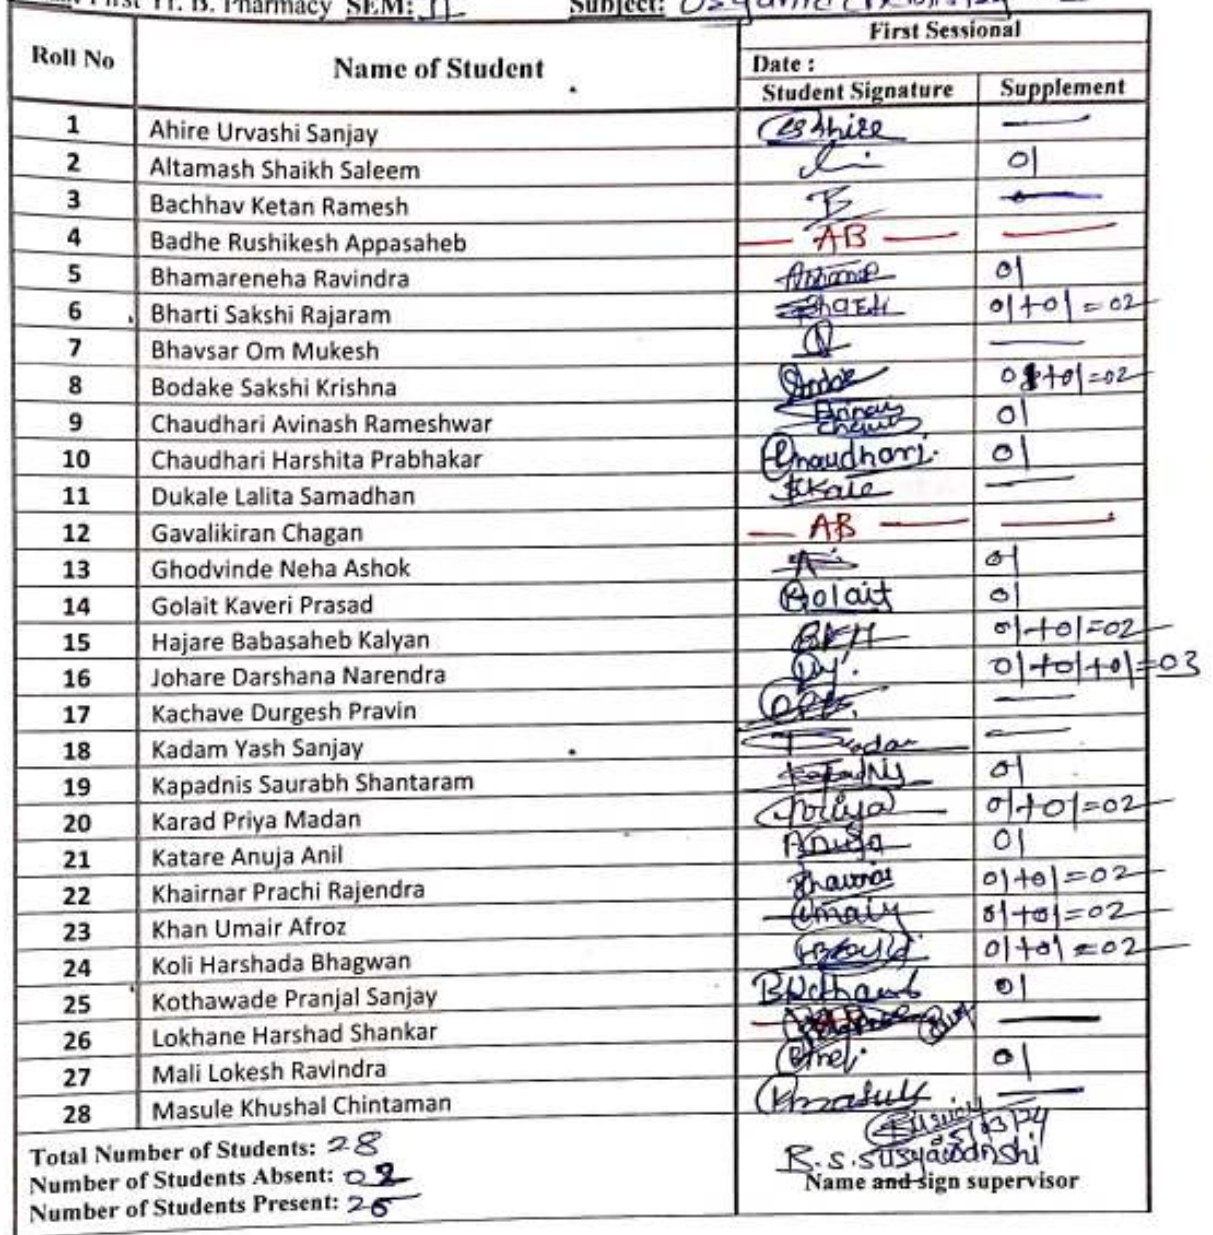 First Yr. B. Pharmacy SEM: II Subject: Organic Chemistry
Roll No Name of Student First Sessional
Date :
Student Signature Supplement
1 Ahire Urvashi Sanjay —
2 Altamash Shaikh Saleem 01
3 Bachhav Ketan Ramesh B —
4 Badhe Rushikesh Appasaheb — AB — —
5 Bhamareneha Ravindra 01
6 Bharti Sakshi Rajaram Bharti 01+01=02
7 Bhavsar Om Mukesh —
8 Bodake Sakshi Krishna 01+01=02
9 Chaudhari Avinash Rameshwar 01
10 Chaudhari Harshita Prabhakar Chaudhari. 01
11 Dukale Lalita Samadhan —
12 Gavalikiran Chagan — AB — —
13 Ghodvinde Neha Ashok 01
14 Golait Kaveri Prasad Golait 01
15 Hajare Babasaheb Kalyan BKH 01+01=02
16 Johare Darshana Narendra 01+01+01=03
17 Kachave Durgesh Pravin —
18 Kadam Yash Sanjay —
19 Kapadnis Saurabh Shantaram Kapadnis 01
20 Karad Priya Madan Priya 01+01=02
21 Katare Anuja Anil Anuja 01
22 Khairnar Prachi Rajendra 01+01=02
23 Khan Umair Afroz Umair 01+01=02
24 Koli Harshada Bhagwan 01+01=02
25 Kothawade Pranjal Sanjay 01
26 Lokhane Harshad Shankar —
27 Mali Lokesh Ravindra 01
28 Masule Khushal Chintaman —
Total Number of Students: 28
Number of Students Absent: 02
Number of Students Present: 26
R.S. Suryawanshi
Name and sign supervisor